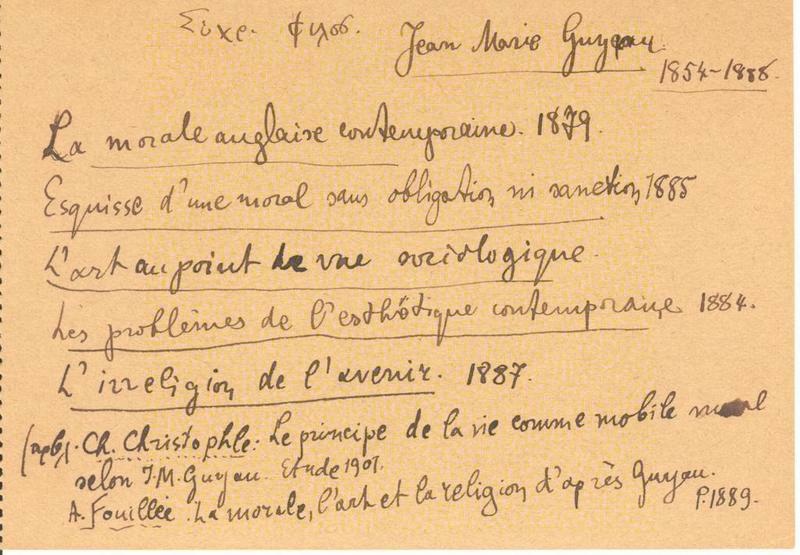 Σύχρ. Φιλοσ.
Jean Marie Guyau
1854-1888.
La morale anglaise contemporaine. 1879.
Esquisse d'une moral sans obligation ni sanction 1885
L'art au point de vue sociologique.
Les problèmes de l'esthétique contemporane 1884.
L'irreligion de l'avenir. 1887.
Ch. Christophle: Le principe de la vie comme mobile moral
selon J.M. Guyau. Etude 1901.
A. Fouillée. La morale, l'art et la religion d'après Guyau.
P. 1889.